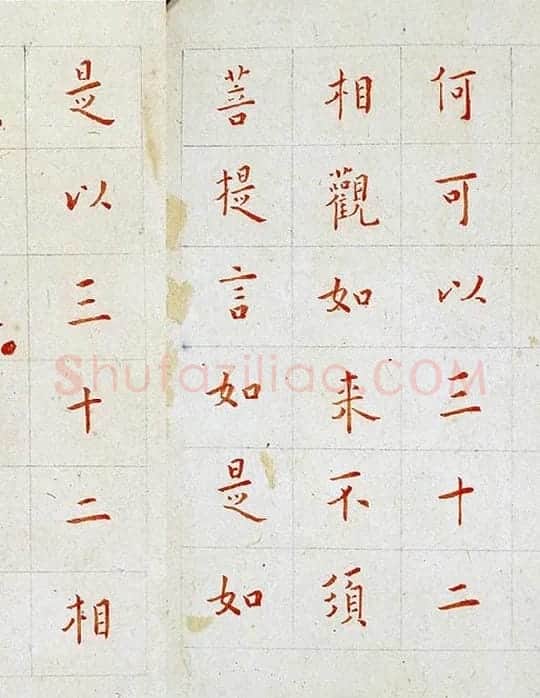 何可以三十二
相觀如来不須
菩提言如是如
是以三十二相
Shufaziliao.COM